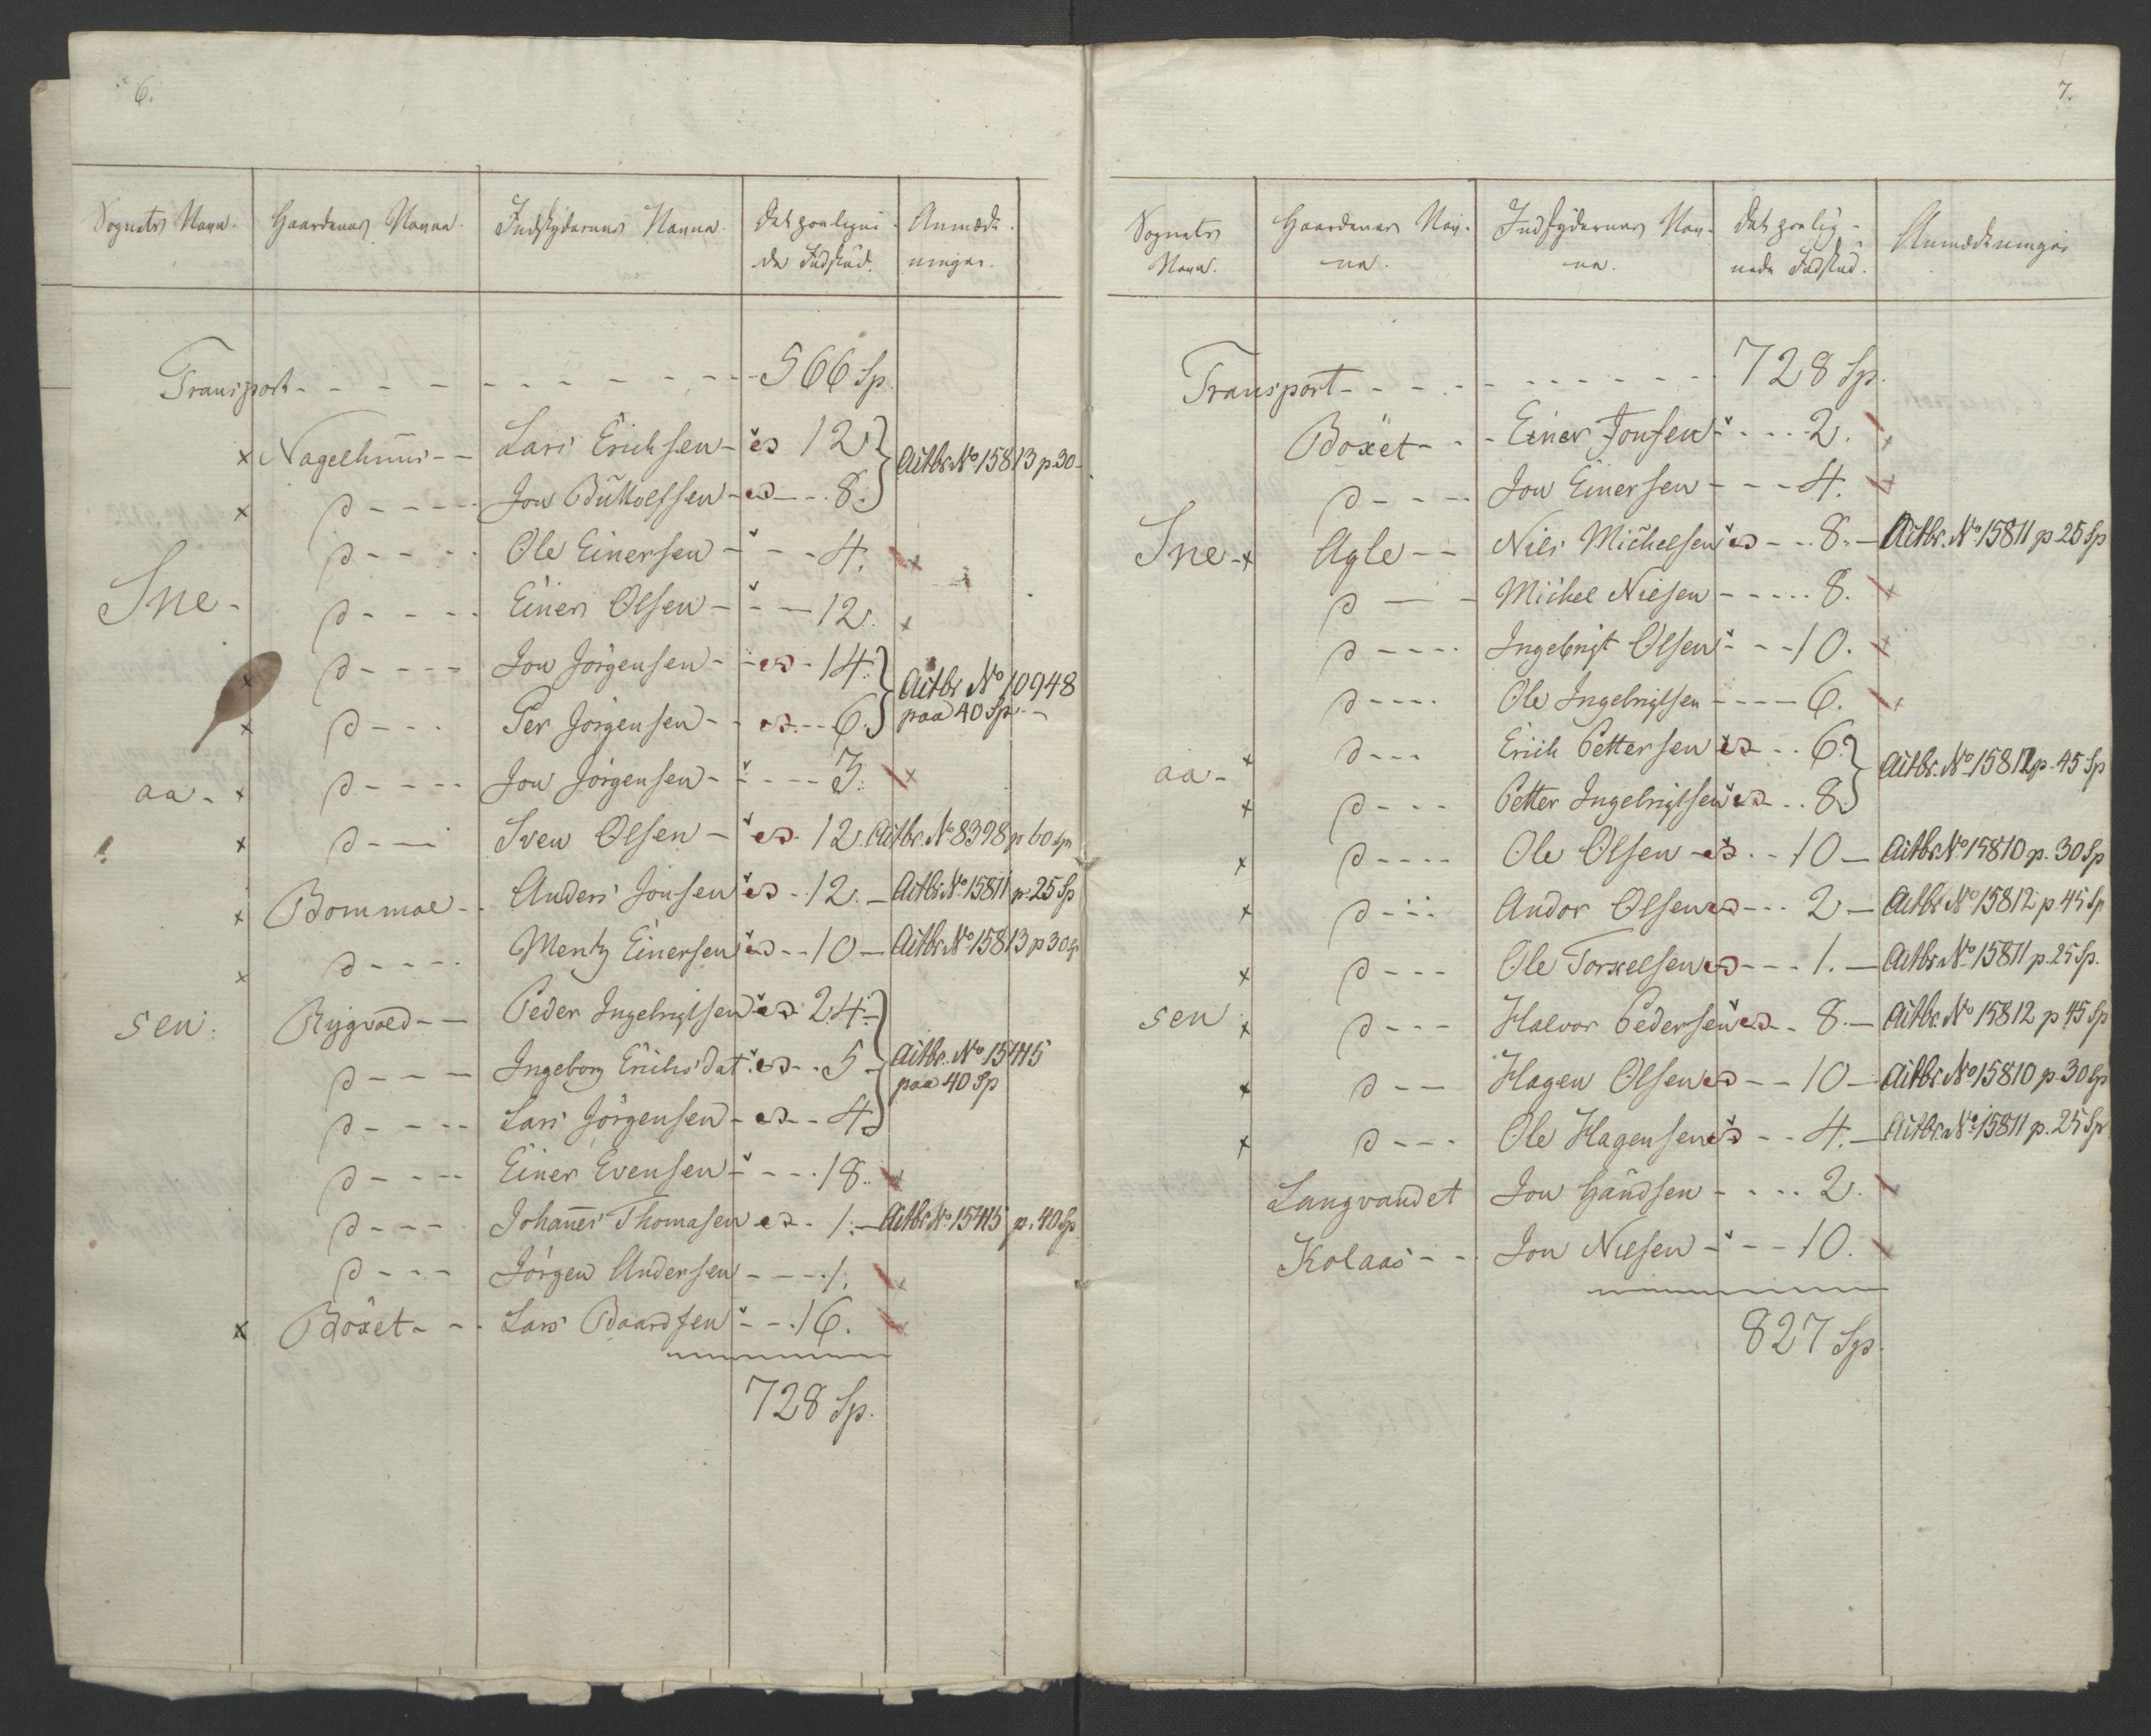 6.
Sognets Navn. Gaardenes Navne. Indskydernes Navne. det pœlignede Indskud. Anmærkninger.
Transport - - - - 566 Sp.
x Nagelhuus - - Lars Erichsen - 12 } Actbr. No 15813 p. 30
x d - - - - Jon Buttolfsen - - 8. }
d - - - - Ole Einersen - - - 4. x
Sne- d - - - - Einer Olsen - - - 12. x
x d - - - - Jon Jörgensen - 14. } Actbr No 10948
x d - - - Per Jörgensen - - 6. } paa 40 Sp.
aa - x d - - - - Jon Jörgensen - - - - 3. x
x d - - - Sven Olsen - 12. Actbr. No 8398 p 60 Sp
x Bommoe - - Anders Jonsen - 12. - Actbr No 15811 p. 25 Sp
x d - - - - Mentz Einersen - - 10 - Actbr. No 15813 p 30 Sp
sen. Rygvold - - Peder Ingebrigtsen 24. }
d - - - Ingeborg Erichsdat. - - 5 } Actbr. No 15415
paa 40 Sp
d - - - - Lars Jörgensen - - 4 }
d - - - - Einer Evensen - - - 18. x
d - - - - Johannes Thomasen - 1. - Actbr No 15415 p. 40 Sp.
d - - - Jörgen Andersen - - - - 1. x
x Böxet - - - Lars Baardsen - - 16. x
728 Sp.
7.
Sognets Navn. Gaardenes Navne. Indskydernes Navne. det pœlignede Indskud. Anmærkninger
Transport - - - - 728 Sp.
Böxet - - - Einer Jonsen - - - - 2. x
d - - - - Jon Einersen - - - 4. x
Sne - x Agle - - Niels Michelsen - - 8. - Actbr. No 15811 p 25 Sp
d - - Michel Nielsen - - - - - 8. x
d - - - - Ingebrigt Olsen - - - 10. x
d - - - - Ole Ingebrigtsen - - - - 6. x
aa - x d - - - Erich Pettersen - - 6. } Actbr. No 15812 p. 45 Sp
x d - - - - Petter Ingebrigtsen - - 8. }
x d - - - - Ole Olsen - - - 10 - Actbr No 15810 p. 30 Sp
x d - - - Andor Olsen - - - 2 - Actbr No 15812 p 45 Sp
x d - - - Ole Torkelsen - - - 1. - Actbr No 15811 p. 25 Sp.
sen x d - - - Halvor Pedersen - - 8. - Actbr. No 15812 p 45 Sp
x d - - Hagen Olsen - - 10 - Actbr. No 15810 p. 30 Sp
x d - - - Ole Hagensen - - 4. - Actbr. No 15811 p. 25 Sp
Langvandet Jon - - - - 2.
Kolaas - - Jon Nielsen - - - 10.
827 Sp.